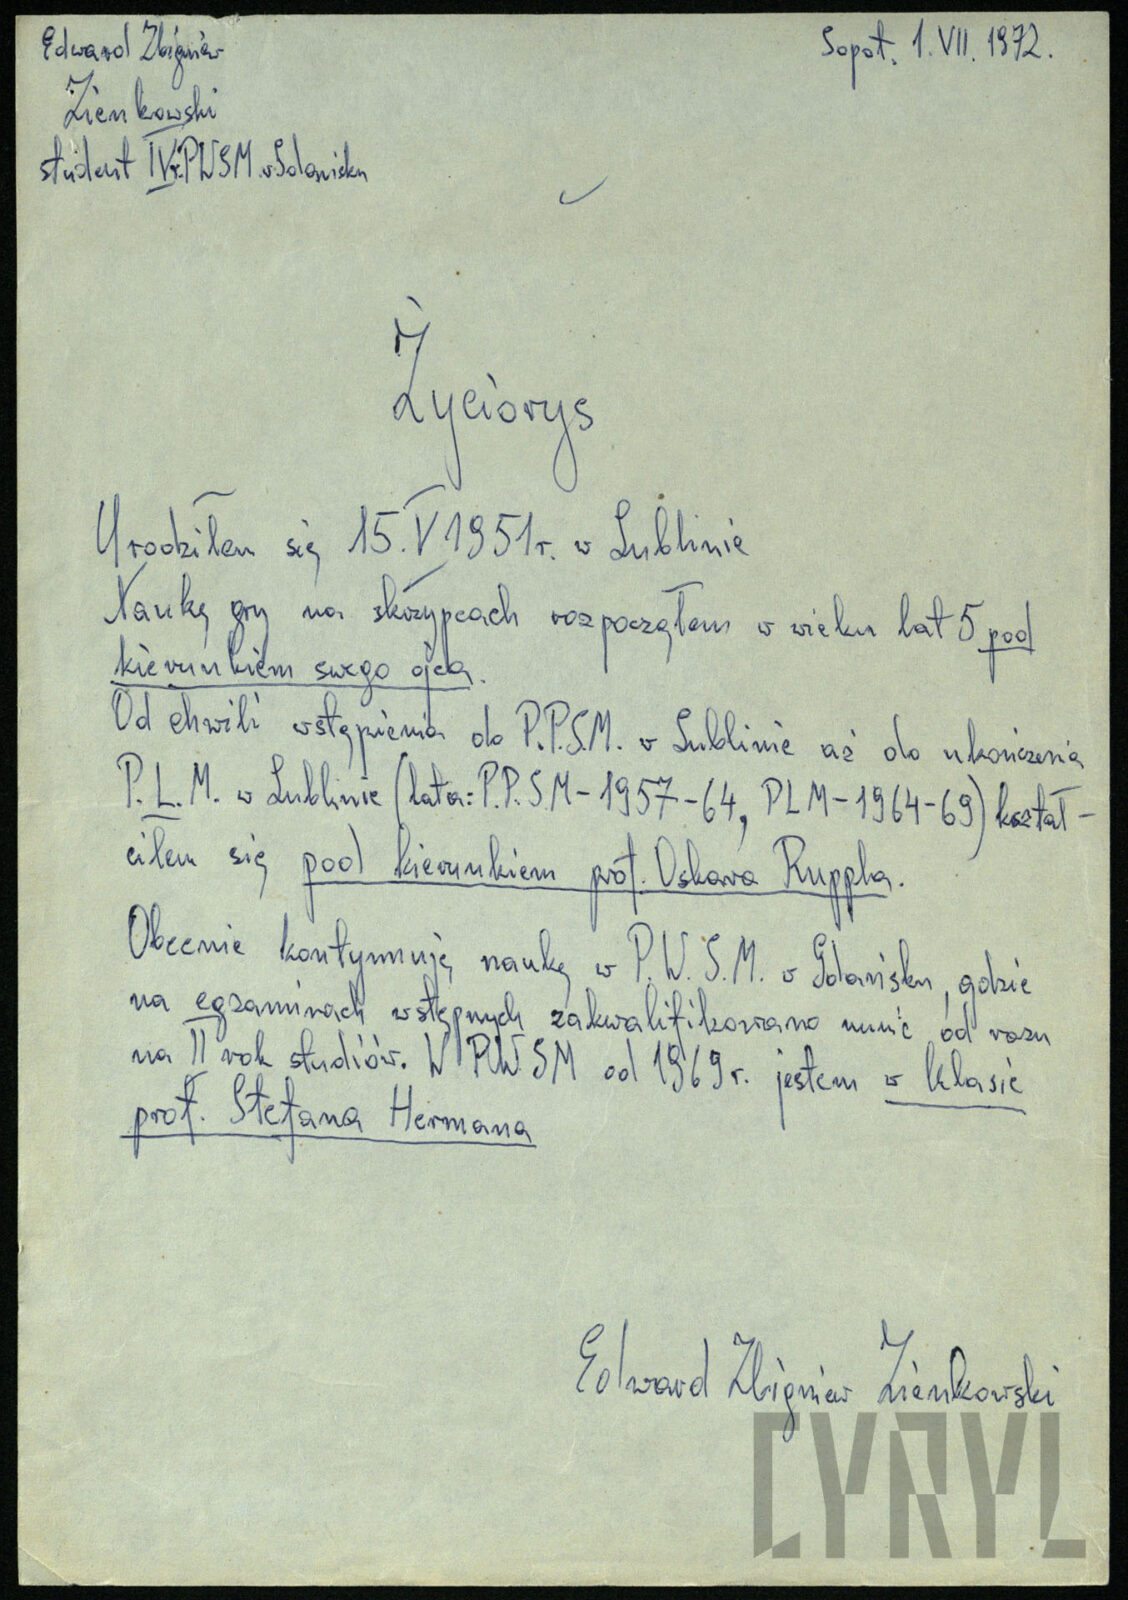 Edward Zbigniew
Zienkowski
student IV r. PWSM w Gdańsku
Sopot. 1. VII. 1972.
Życiorys
Urodziłem się 15. V 1951 r. w Lublinie
Naukę gry na skrzypcach rozpocząłem w wieku lat 5 pod
kierunkiem swego ojca.
Od chwili wstąpienia do P.P.S.M. w Lublinie aż do ukończenia
P.L.M. w Lublinie (lata: P.P.S.M - 1957-64, PLM - 1964-69) kształ-
ciłem się pod kierunkiem prof. Oskara Ruppla.
Obecnie kontynuuję naukę w P.W.S.M. w Gdańsku, gdzie
na egzaminach wstępnych zakwalifikowano mnie od razu
na II rok studiów. W PWSM od 1969 r. jestem w klasie
prof. Stefana Hermana
Edward Zbigniew Zienkowski
CYRYL